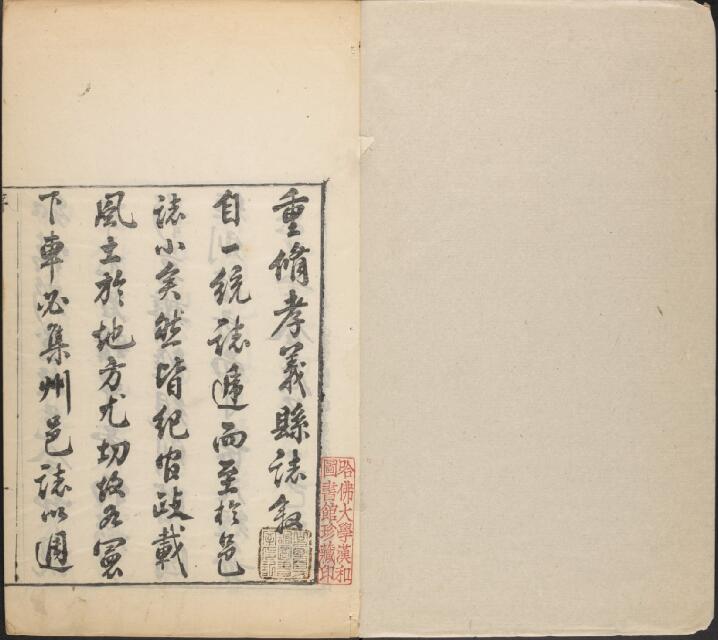 哈佛大學漢和
圖書館珍藏印
重脩孝義縣誌叙
自一統誌遞而至於邑
誌小矣然皆紀官政載
風土於地方尤切故各憲
下車必集州邑誌以週
序